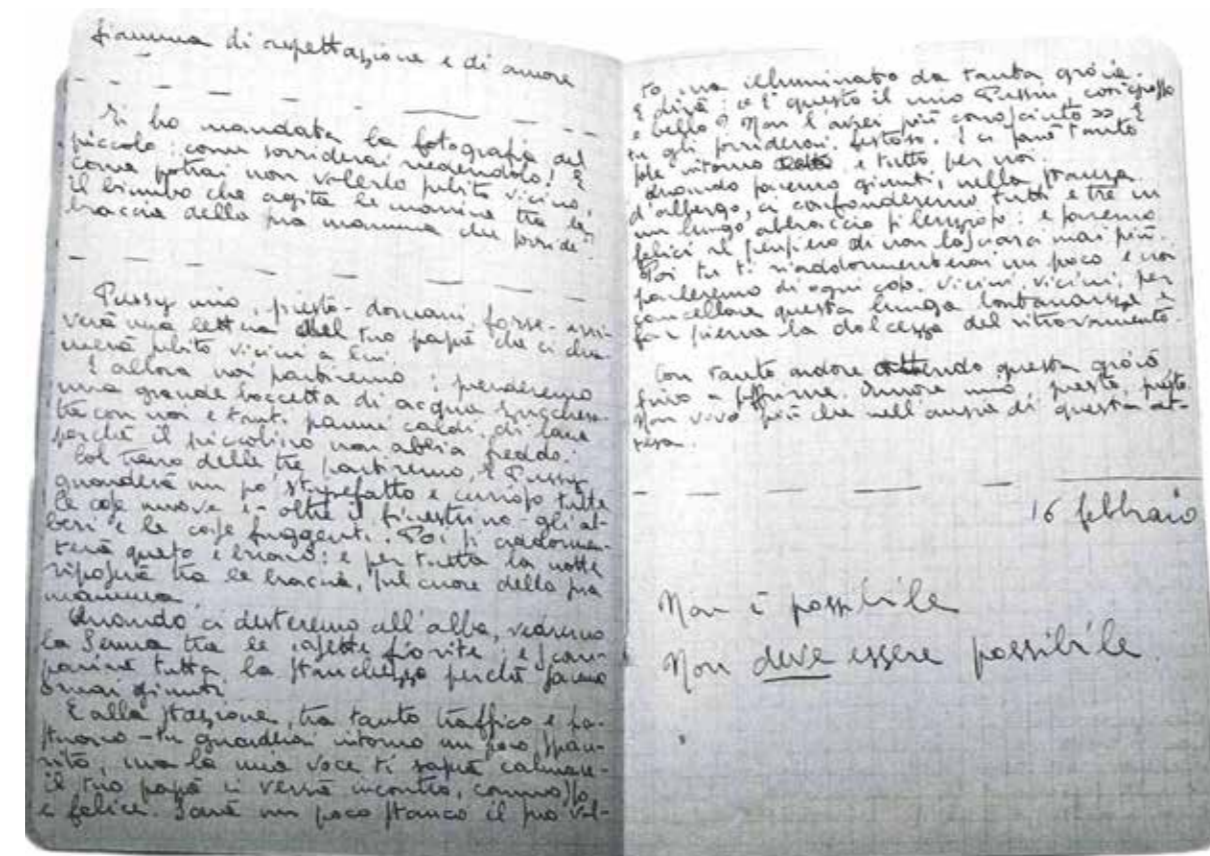 fiamma di aspettazione e di amore
Ti ho mandata la fotografia del
piccolo: come sorriderai vedendolo! E
come potrai non volerlo subito vicino,
il bimbo che agita le manine tra le
braccia della sua mamma che sorride?
Pussy mio, presto - domani forse - arri-
verà una lettera del tuo papà che ci chia-
merà subito vicini a lui.
E allora noi partiremo: prenderemo
una grande boccetta di acqua zucchera-
ta con noi e tanti panni caldi, di lana
perché il piccolino non abbia freddo.
Col treno delle tre partiremo, e Pussy
guarderà un po' stupefatto e curioso tutte
le cose nuove e - oltre il finestrino - gli al-
beri e le cose fuggenti. Poi si addormen-
terà queto e buono: e per tutta la notte
riposerà tra le braccia, sul cuore della sua
mamma.
Quando ci desteremo all'alba, vedremo
la Senna tra le casette fiorite: e scom-
parirà tutta la stanchezza perché saremo
ormai giunti.
E alla stazione, tra tanto traffico e fra-
stuono - tu guarderai intorno un poco spau-
rito, ma la mia voce ti saprà calmare -
il tuo papà ci verrà incontro, commosso
e felice. Sarà un poco stanco il suo vol-
to, ma illuminato da tanta gioia.
E dirà: « E' questo il mio Pussin, così grosso
e bello? Non l'avrei più conosciuto » E
tu gli sorriderai, festoso. E ci sarà tanto
sole intorno e tutto per noi.
Quando saremo giunti, nella stanza
d'albergo, ci confonderemo tutti e tre in
un lungo abbraccio silenzioso: e saremo
felici al pensiero di non lasciarci mai più.
Poi tu ti riaddormenterai un poco e noi
parleremo di ogni cosa, vicini, vicini, per
cancellare questa lunga lontananza e
far piena la dolcezza del ritrovamento.
Con tanto ardore attendo questa gioia
fino a soffrirne. Amore mio, presto, presto.
Non vivo più che nell'ansia di questa at-
tesa.
16 febbraio
Non è possibile
Non deve essere possibile.